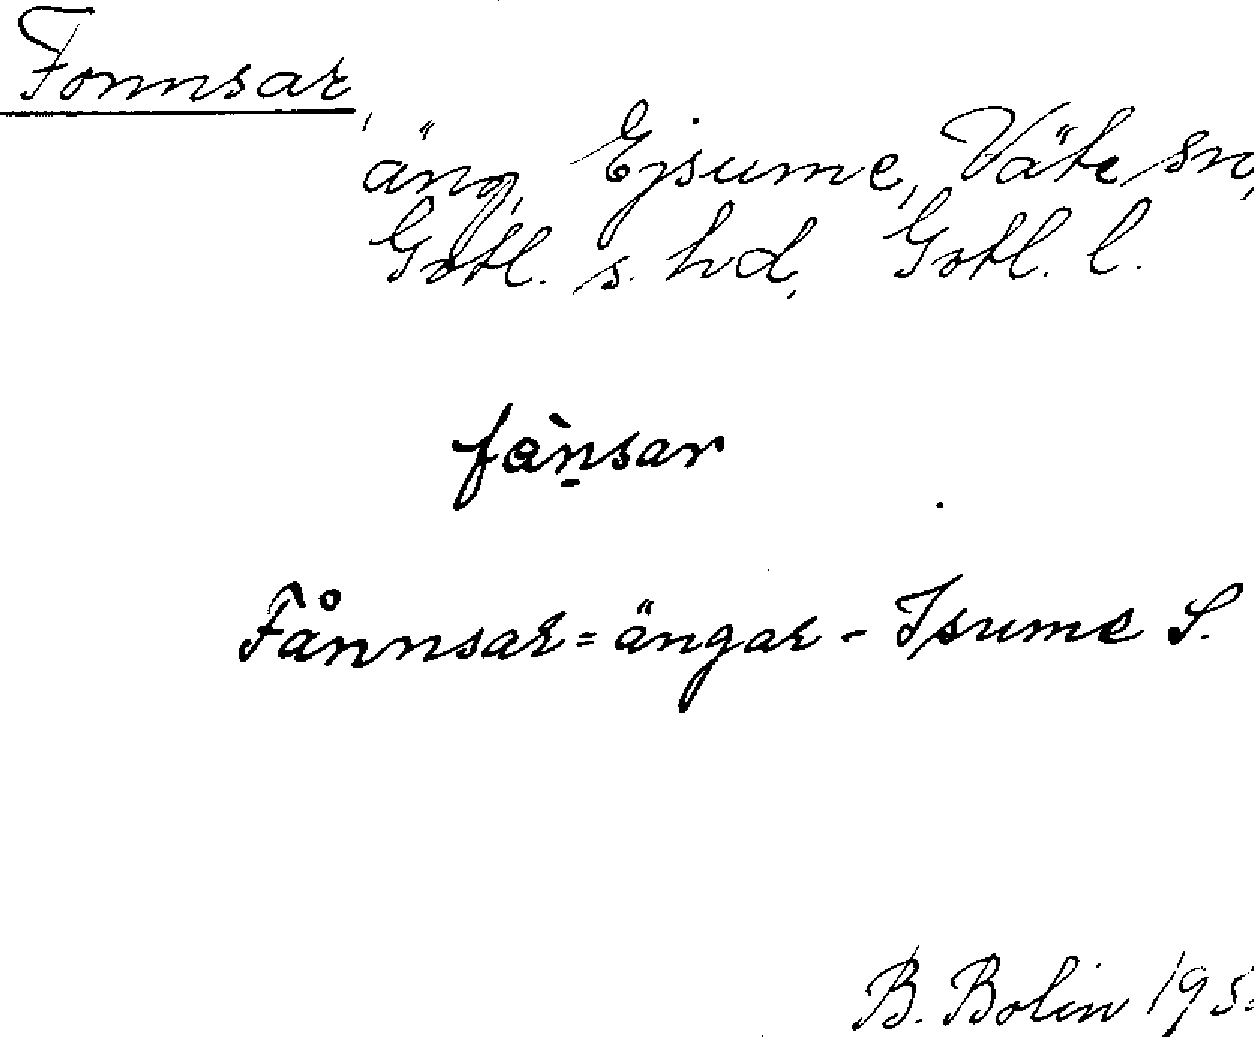 Fonnsar,
äng, Ejsume, Väte sn,
Gotl. s. hd, Gotl. l.
fànsar
Fånnsar = ängar - Isume S.
B. Bolin 195